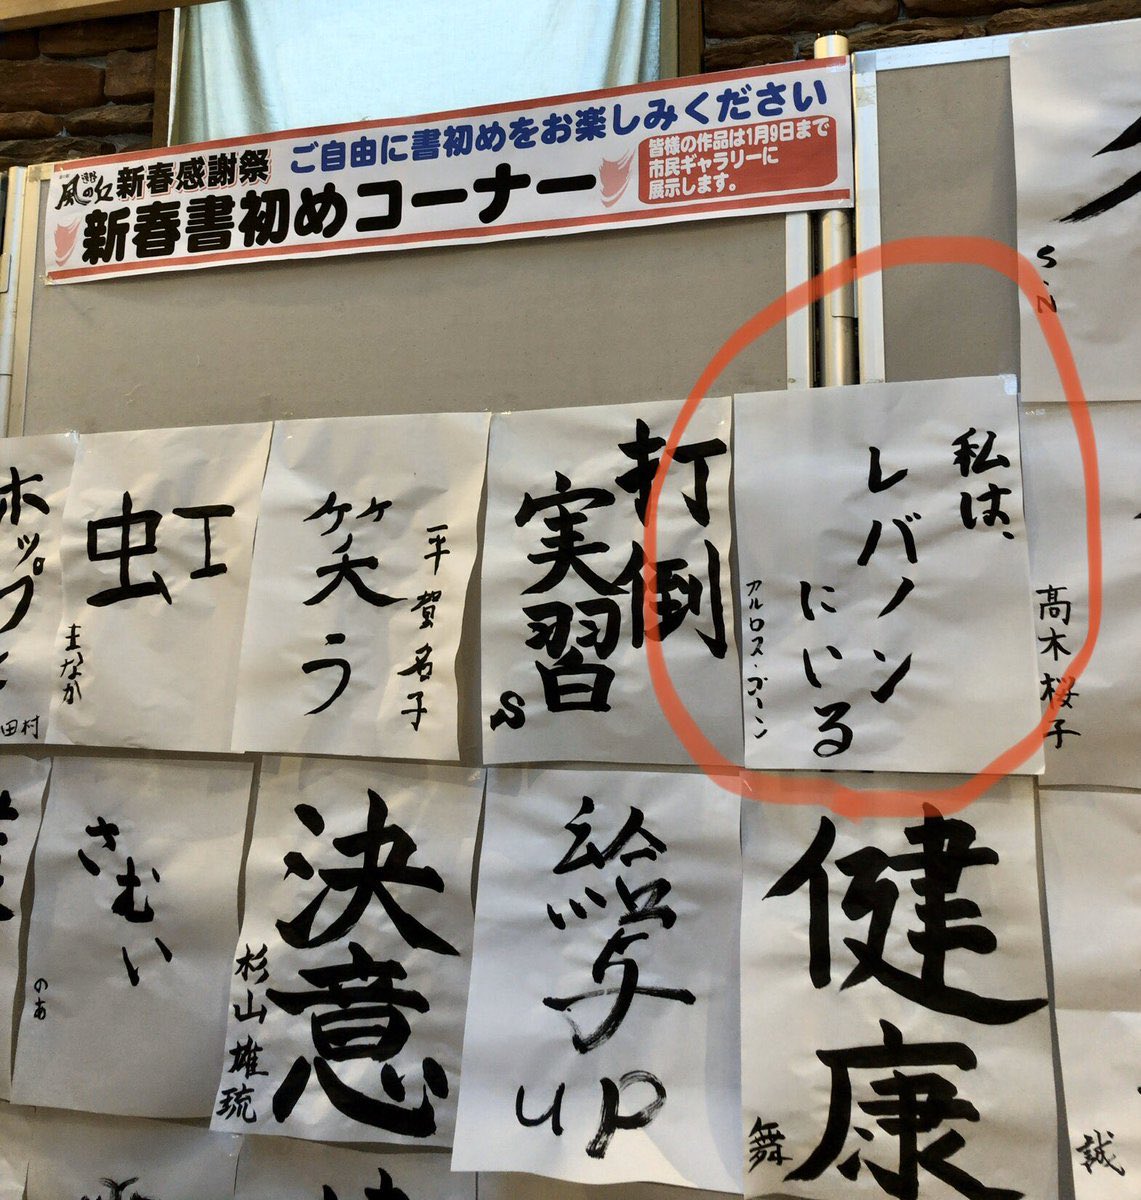 道の駅
風の丘
新春感謝祭
ご自由に書初めをお楽しみください
新春書初めコーナー
皆様の作品は1月9日まで
市民ギャラリーに
展示します。
S.N
ホップ
田村
虹
まなか
笑う
平賀名子
打倒
実習
S
私は、
レバノン
にいる
アルロス・ゴーン
高木桜子
さむい
のあ
決意
杉山雄琉
給与
up
健康
舞
誠